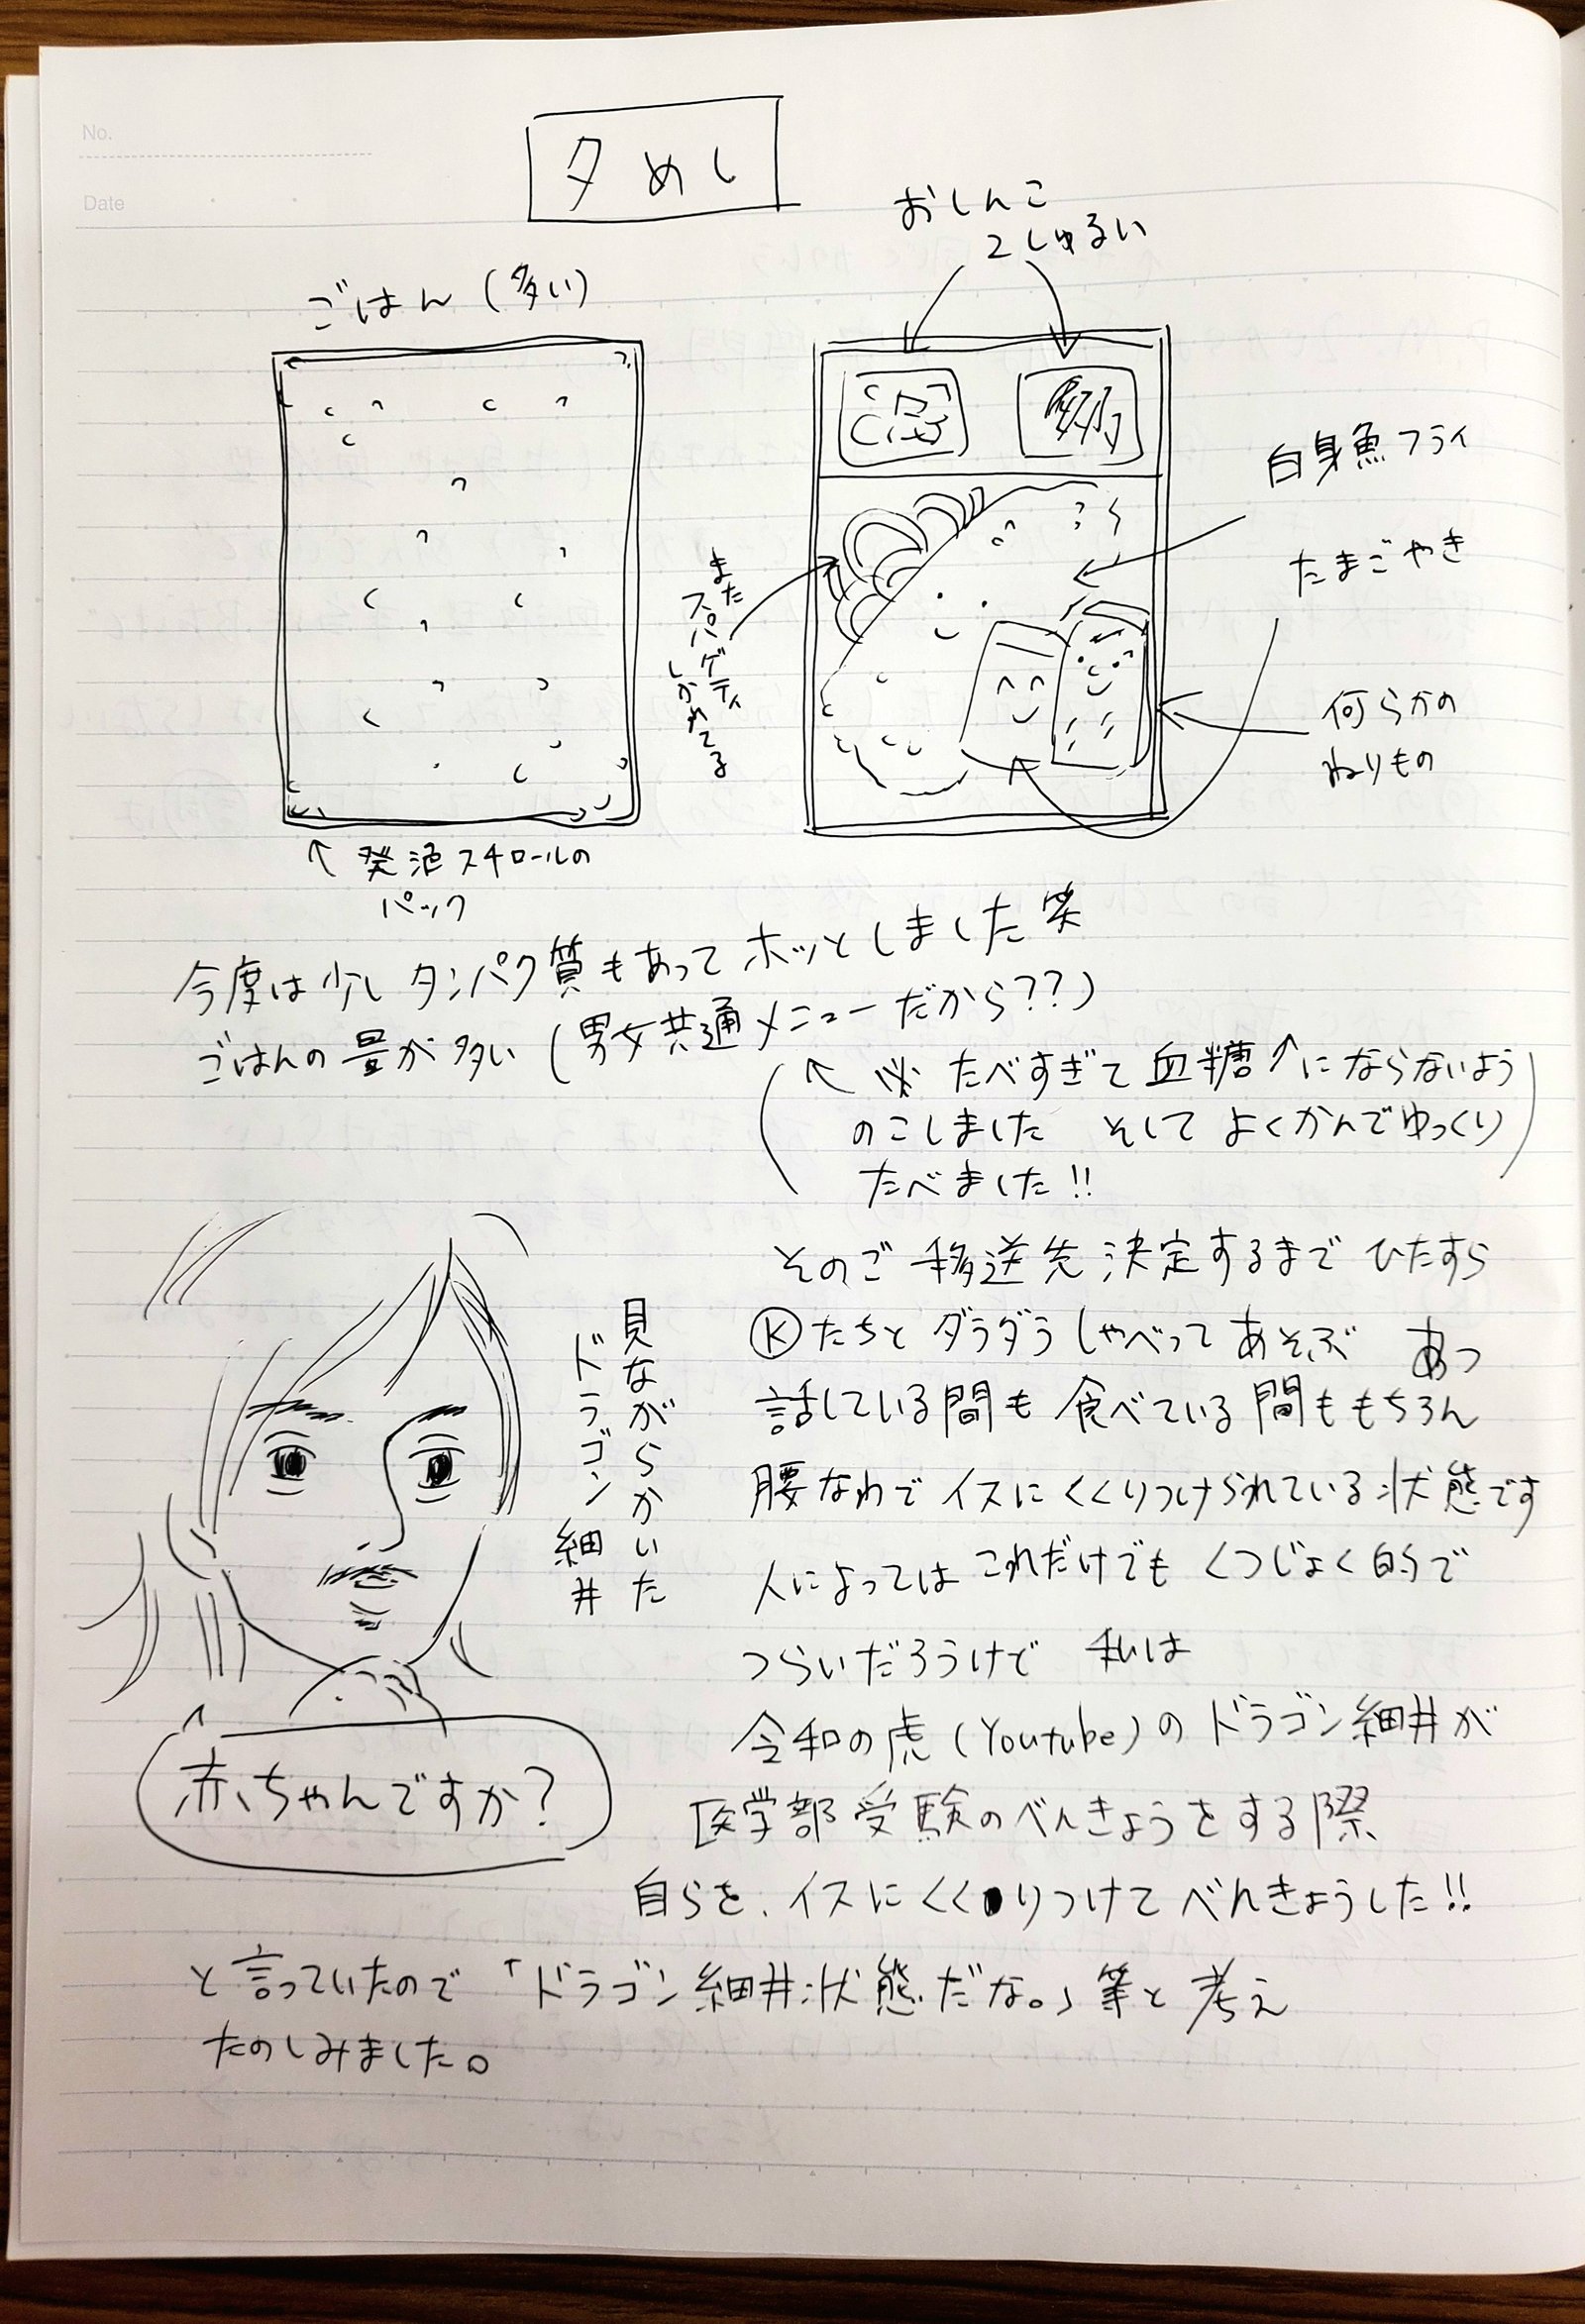 No.
Date
夕めし
おしんこ
2しゅるい
ごはん(多い)
白身魚フライ
たまごやき
また
スパゲティ
しかれてる
何らかの
ねりもの
↑ 発泡スチロールの
パック
今度は少しタンパク質もあってホッとしました笑
ごはんの量が多い(男女共通メニューだから??)
(↑ ※ たべすぎて血糖↑にならないよう
のこしました そして よくかんでゆっくり
たべました!!)
そのご 移送先 決定するまで ひたすら
Ⓚたちと ダラダラ しゃべって あそぶ あっ
話している間も 食べている間ももちろん
腰なわで イスに くくりつけられている状態です
人によっては これだけでも くつじょく的で
つらいだろうけど 私は
令和の虎(Youtube)の ドラゴン細井が
医学部受験のべんきょうをする際
自らを、イスにくくりつけて べんきょうした!!
と言っていたので「ドラゴン細井状態だな。」等と考え
たのしみました。
見ながらかいた
ドラゴン細井
赤ちゃんですか?